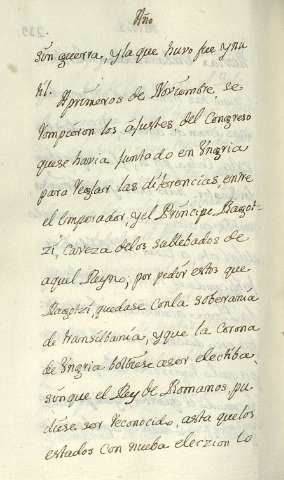 Año
sin guerra, y la que huvo fue ynu
til.
A primeros de Noviembre, se
rompieron los ajustes, del Congreso
que se havia juntado en Yngria
para reglar las diferencias, entre
el Emperador, y el Principe Ragot-
zi, caveza de los sublebados de
aquel Reyno, por pedir estos que
Ragotzi, quedase con la soberania
de transilbania, y que la Corona
de Yngria bolbiese a ser electiba,
aunque el Rey de Romanos, pu-
diese ser reconocido, asta que los
estados con nueba eleczion lo